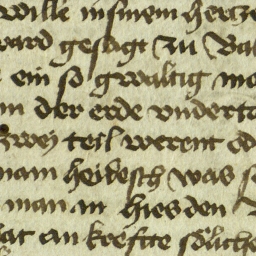 wille in sinem hertze
ward gesagt zu Ba
ein so gwaltig
der erde vndert
zwey teil werent od
nam heidesch was s
man in hies den
hat an krefte söliche